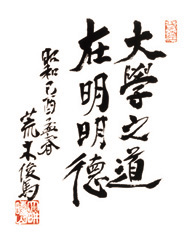 大學之道
在明明德
昭和己酉孟春
荒木俊馬